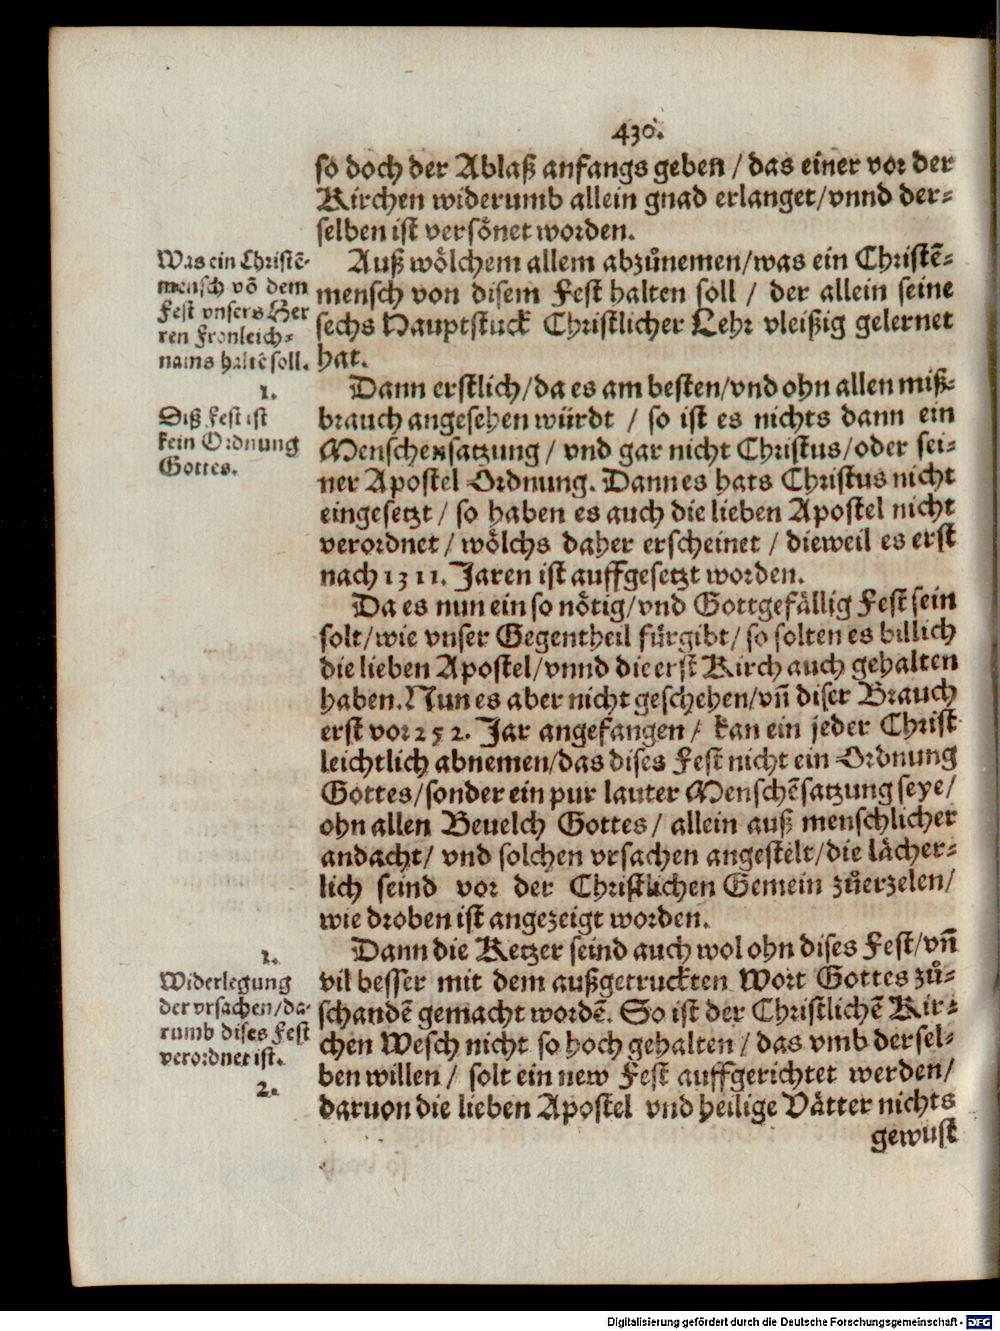 430.
so doch der Ablaß anfangs geben / das einer vor der
Kirchen widerumb allein gnad erlanget/vnnd der-
selben ist versönet worden.
Was ein Christẽ-
mensch võ dem
Fest vnsers Her
ren Fronleich-
nams haltẽ soll.
Auß wölchem allem abzůnemen/was ein Christẽ-
mensch von disem Fest halten soll / der allein seine
sechs Hauptstuck Christlicher Lehr vleißig gelernet
hat.
1.
Diß Fest ist
kein Ordnung
Gottes.
Dann erstlich/da es am besten/vnd ohn allen miß-
brauch angesehen würdt / so ist es nichts dann ein
Menschensatzung / vnd gar nicht Christus/oder sei-
ner Apostel Ordnung. Dann es hats Christus nicht
eingesetzt / so haben es auch die lieben Apostel nicht
verordnet / wölchs daher erscheinet / dieweil es erst
nach 1311. Jaren ist auffgesetzt worden.
Da es nun ein so nötig/vnd Gottgefällig Fest sein
solt/wie vnser Gegentheil fürgibt/ so solten es billich
die lieben Apostel/vnnd die erst Kirch auch gehalten
haben. Nun es aber nicht geschehen/vñ diser Brauch
erst vor 252. Jar angefangen / kan ein jeder Christ
leichtlich abnemen/das dises Fest nicht ein Ordnung
Gottes/sonder ein pur lauter Menschẽsatzung seye/
ohn allen Beuelch Gottes/ allein auß menschlicher
andacht/ vnd solchen vrsachen angestelt/die lächer-
lich seind vor der Christlichen Gemein zůerzelen/
wie droben ist angezeigt worden.
1.
Widerlegung
der vrsachen/da-
rumb dises Fest
verordnet ist.
2.
Dann die Ketzer seind auch wol ohn dises Fest/vñ
vil besser mit dem außgetruckten Wort Gottes zů-
schandẽ gemacht wordẽ. So ist der Christlichẽ Kir-
chen Wesch nicht so hoch gehalten / das vmb dersel-
ben willen / solt ein new Fest auffgerichtet werden/
daruon die lieben Apostel vnd heilige Vätter nichts
gewust
Digitalisierung gefördert durch die Deutsche Forschungsgemeinschaft - DFG